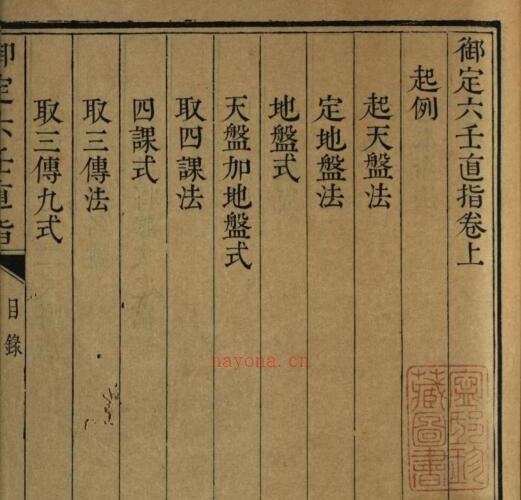 御定六壬直指卷上
起例
起天盤法
定地盤法
地盤式
天盤加地盤式
取四課法
四課式
取三傳法
取三傳九式
御定六壬直指
目錄
nayona.cn
藏圖書